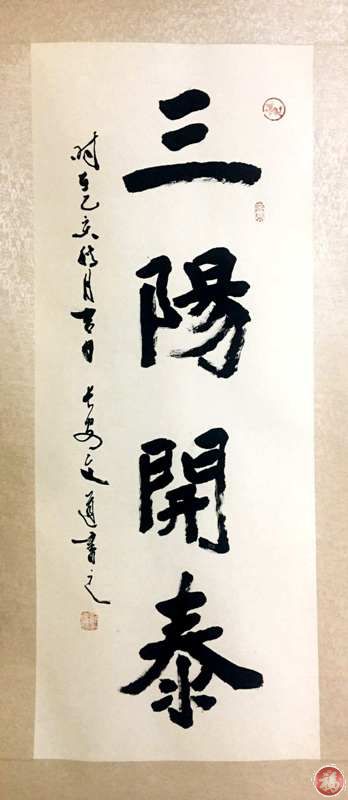 三陽開泰
時在乙亥 月吉日 長安文道書之
福